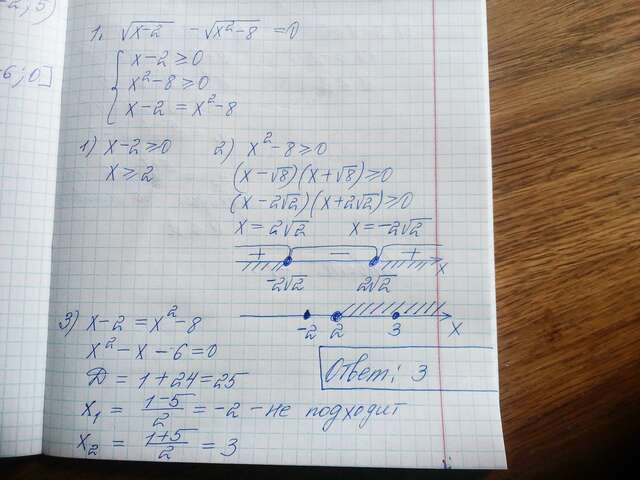 -2; 5)
-6; 0]
1. √x-2 - √x²-8 = 0
x-2 ≥ 0
x²-8 ≥ 0
x-2 = x²-8
1) x-2 ≥ 0
x ≥ 2
2) x²-8 ≥ 0
(x-√8)(x+√8) ≥ 0
(x-2√2)(x+2√2) ≥ 0
x = 2√2 x = -2√2
+ - + x
-2√2 2√2
-2 2 3 x
3) x-2 = x²-8
x²-x-6=0
D = 1+24=25
x₁ = (1-5)/2 = -2 - не подходит
x₂ = (1+5)/2 = 3
Ответ: 3